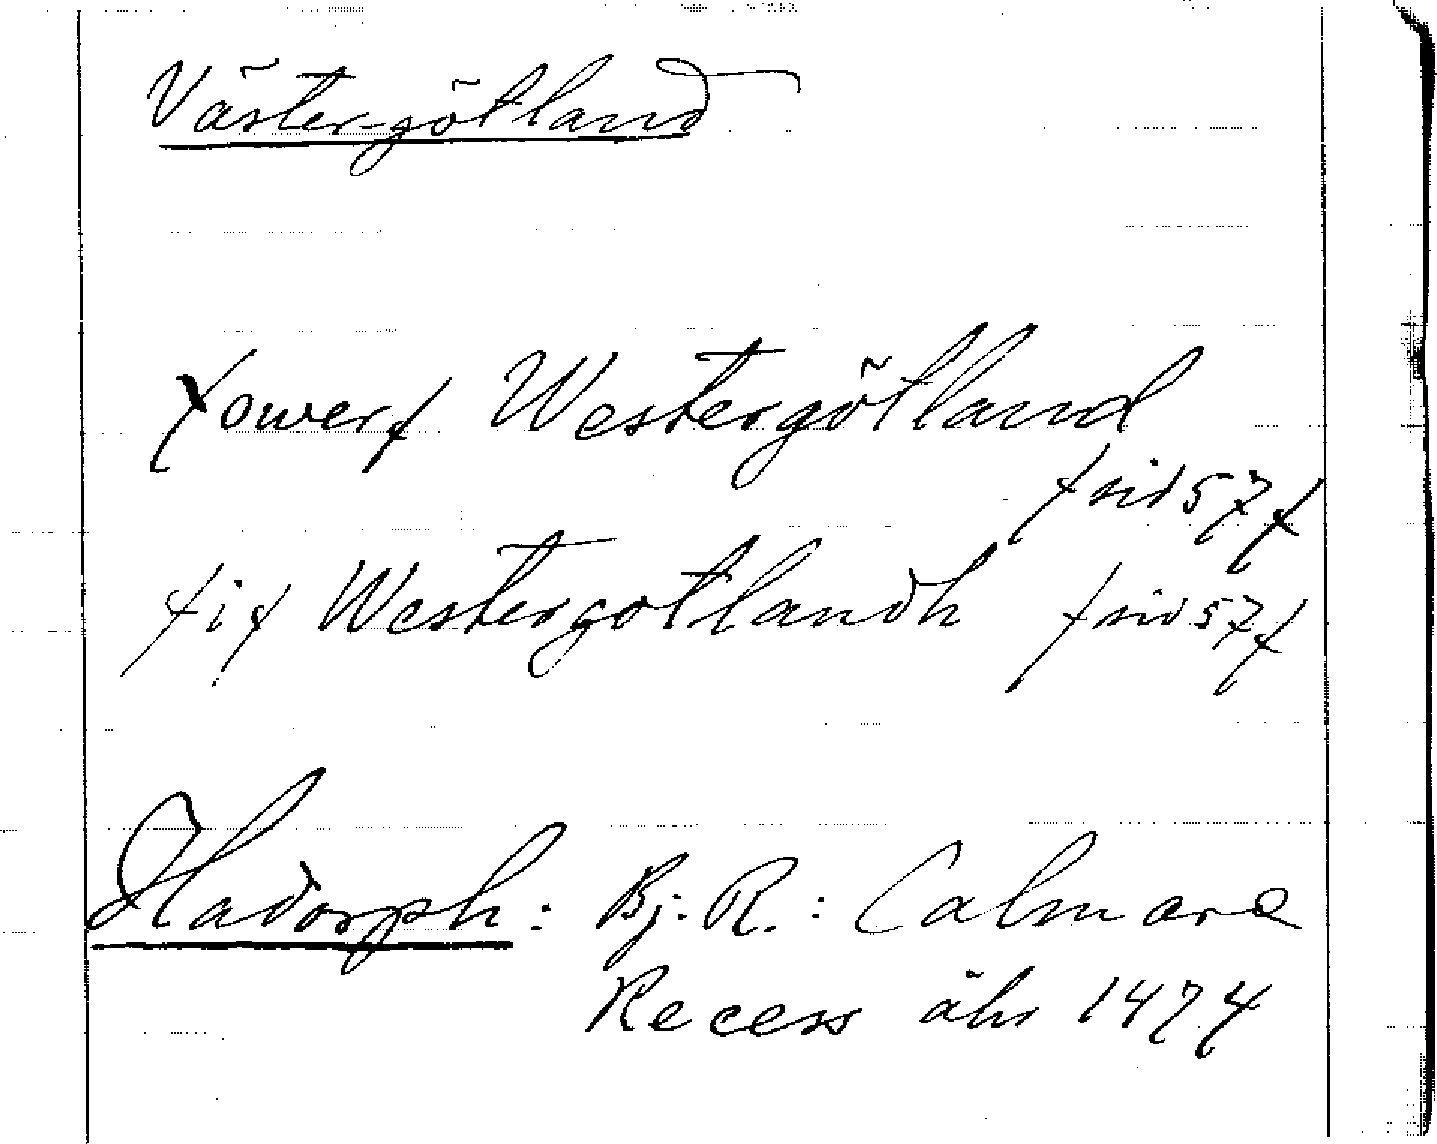 Väster-götland
(ower) Westergötland
(sid 57)
(i) Westergotlandh (sid 57)
Hadorph: Bj. R.: Calmare
Recess åhr 1474